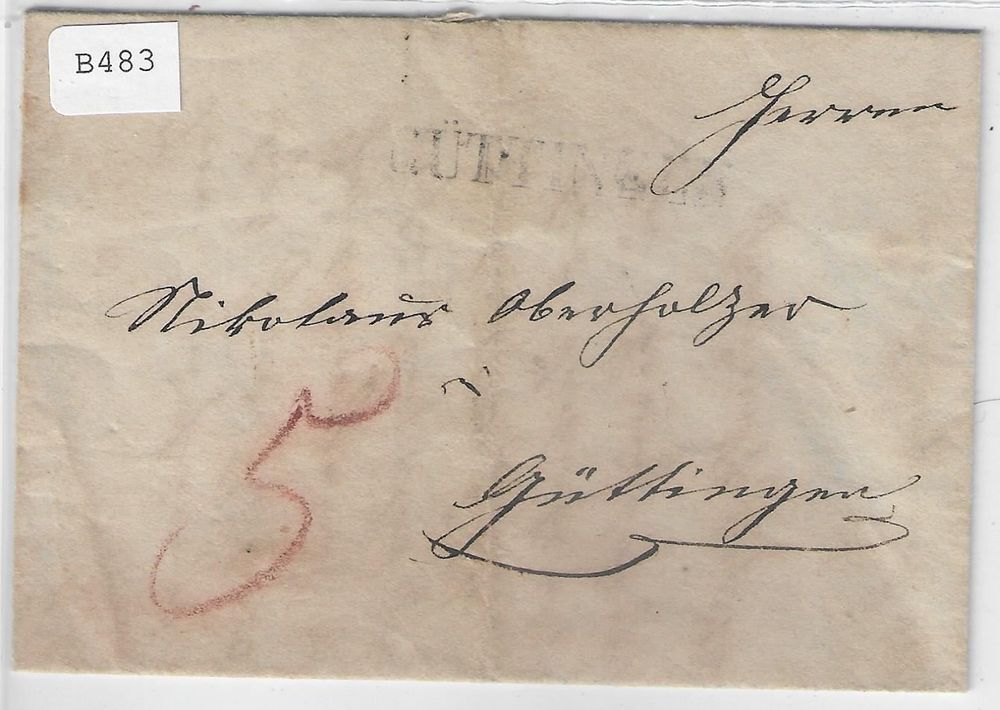 B483
Herren
GÜTTINGEN
Nikolaus Oberholzer
Güttingen
5